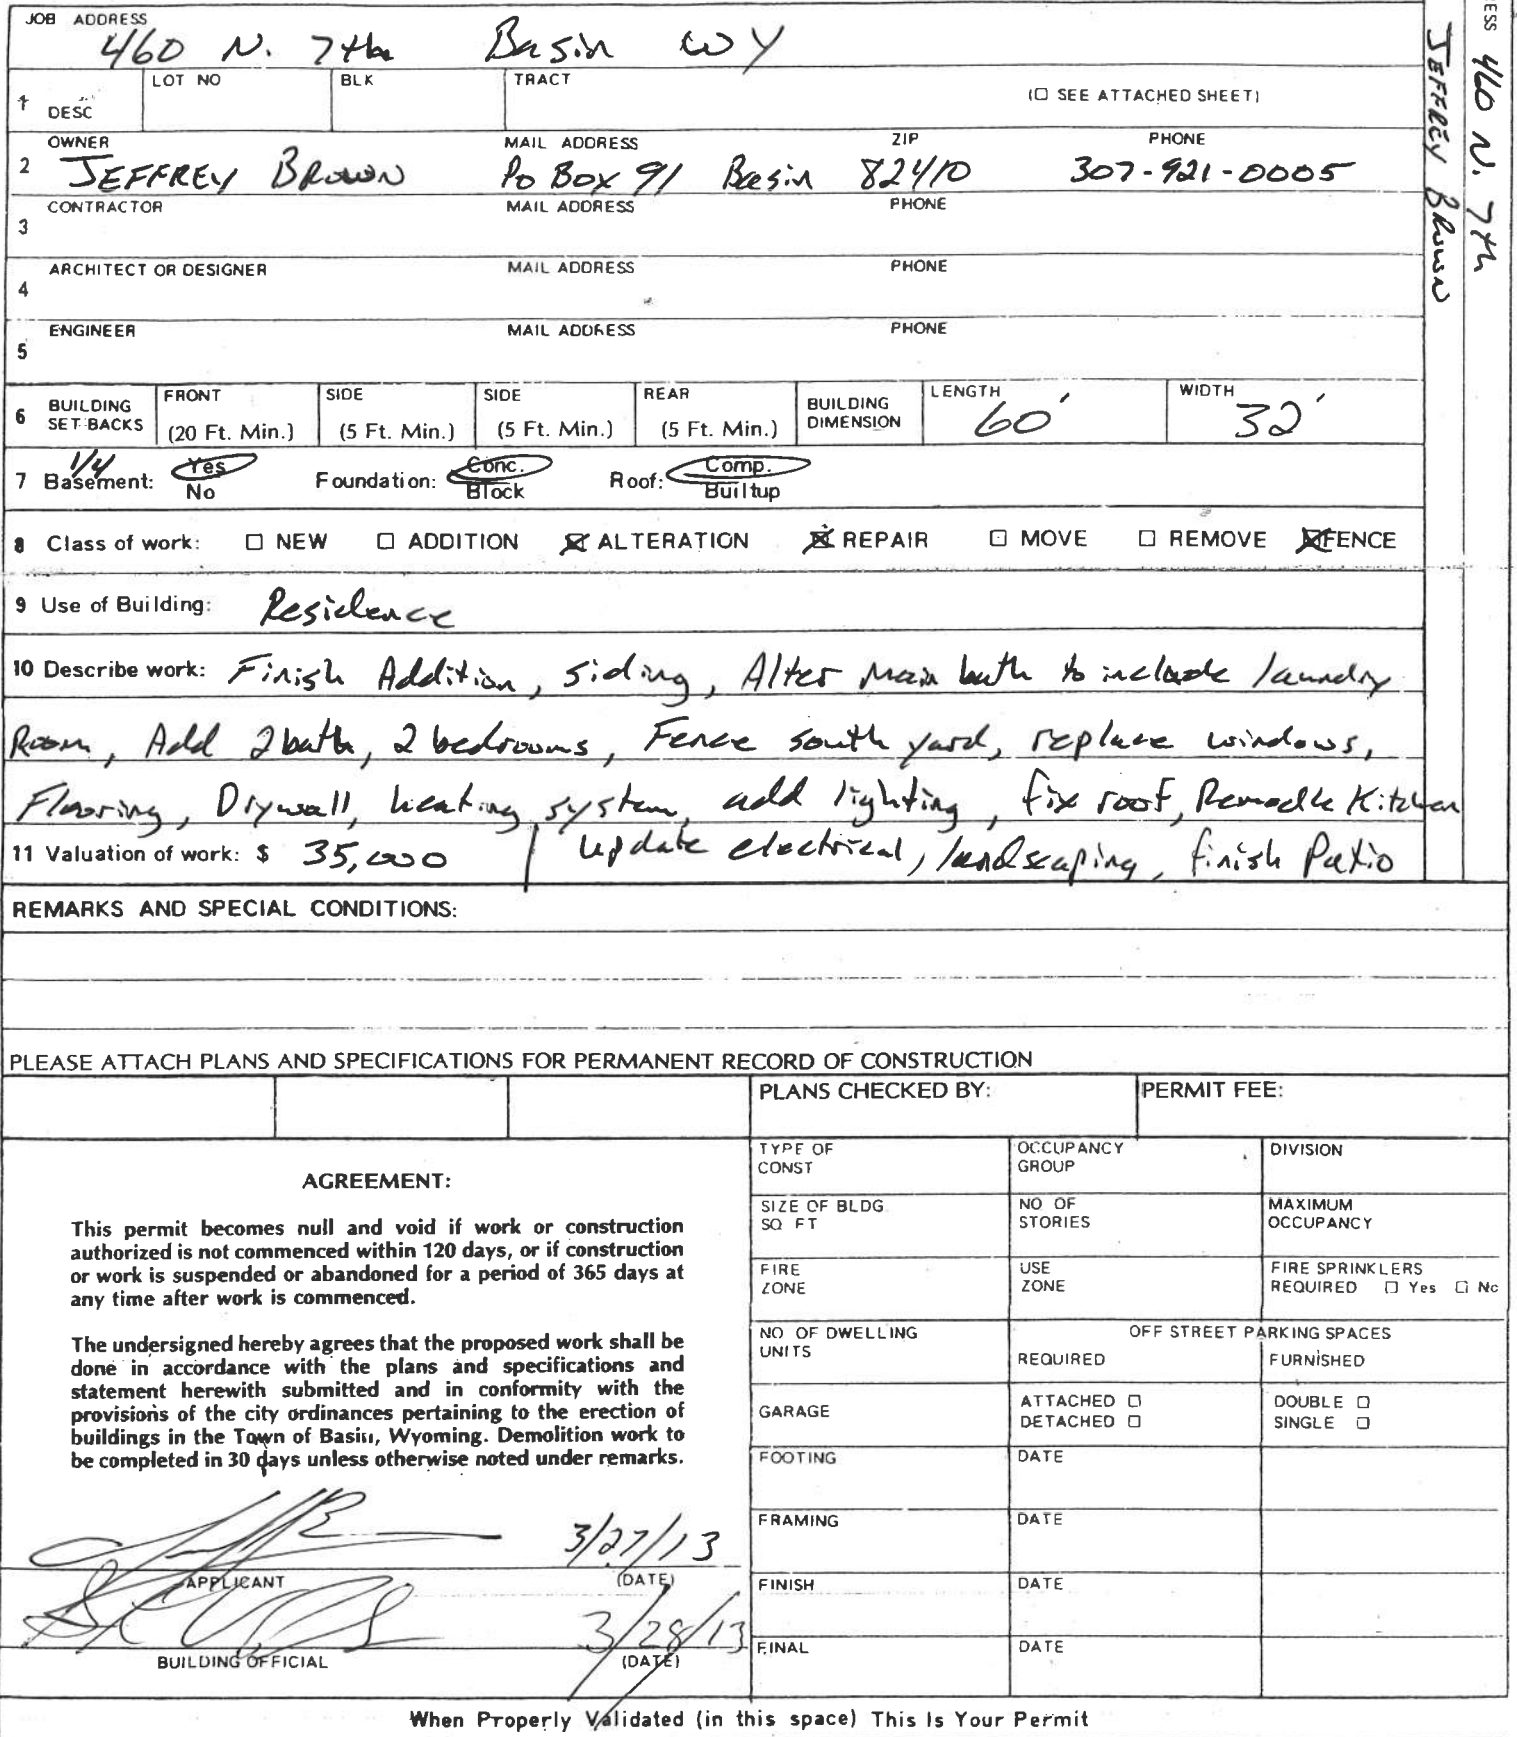 JOB ADDRESS
460 N. 7th Basin WY
LOT NO BLK TRACT
1 DESC (☐ SEE ATTACHED SHEET)
OWNER MAIL ADDRESS ZIP PHONE
2 JEFFREY BROWN Po Box 91 Basin 82410 307-921-0005
CONTRACTOR MAIL ADDRESS PHONE
3
ARCHITECT OR DESIGNER MAIL ADDRESS PHONE
4
ENGINEER MAIL ADDRESS PHONE
5
FRONT SIDE SIDE REAR LENGTH WIDTH
6 BUILDING SET BACKS (20 Ft. Min.) (5 Ft. Min.) (5 Ft. Min.) (5 Ft. Min.) BUILDING DIMENSION 60' 32'
1/4
7 Basement: Yes No Foundation: Conc. Block Roof: Comp. Builtup
8 Class of work: ☐ NEW ☐ ADDITION ☒ ALTERATION ☒ REPAIR ☐ MOVE ☐ REMOVE ☒ FENCE
9 Use of Building: Residence
10 Describe work: Finish Addition, siding, Alter Main bath to include laundry
Room, Add 2 bath, 2 bedrooms, Fence south yard, replace windows,
Flooring, Drywall, heating system, add lighting, fix roof, Remodle Kitchen
11 Valuation of work: $ 35,000 / update electrical, landscaping, finish Patio
REMARKS AND SPECIAL CONDITIONS:
PLEASE ATTACH PLANS AND SPECIFICATIONS FOR PERMANENT RECORD OF CONSTRUCTION
PLANS CHECKED BY: PERMIT FEE:
AGREEMENT:
This permit becomes null and void if work or construction
authorized is not commenced within 120 days, or if construction
or work is suspended or abandoned for a period of 365 days at
any time after work is commenced.
The undersigned hereby agrees that the proposed work shall be
done in accordance with the plans and specifications and
statement herewith submitted and in conformity with the
provisions of the city ordinances pertaining to the erection of
buildings in the Town of Basin, Wyoming. Demolition work to
be completed in 30 days unless otherwise noted under remarks.
3/27/13
APPLICANT (DATE)
3/28/13
BUILDING OFFICIAL (DATE)
TYPE OF CONST OCCUPANCY GROUP DIVISION
SIZE OF BLDG SQ FT NO OF STORIES MAXIMUM OCCUPANCY
FIRE ZONE USE ZONE FIRE SPRINKLERS REQUIRED ☐ Yes ☐ No
NO OF DWELLING UNITS OFF STREET PARKING SPACES
REQUIRED FURNISHED
GARAGE ATTACHED ☐ DOUBLE ☐
DETACHED ☐ SINGLE ☐
FOOTING DATE
FRAMING DATE
FINISH DATE
FINAL DATE
When Properly Validated (in this space) This Is Your Permit
ESS 460 N. 7th
JEFFREY BROWN